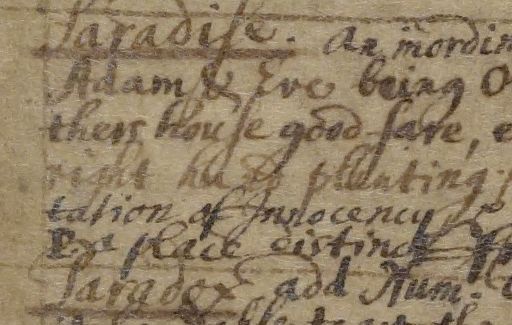 Paradise. An inordin
Adam & Eve being O
thers house good fare, e
right hand planting
tation of Innocency
place distinct
Paradox add Num.